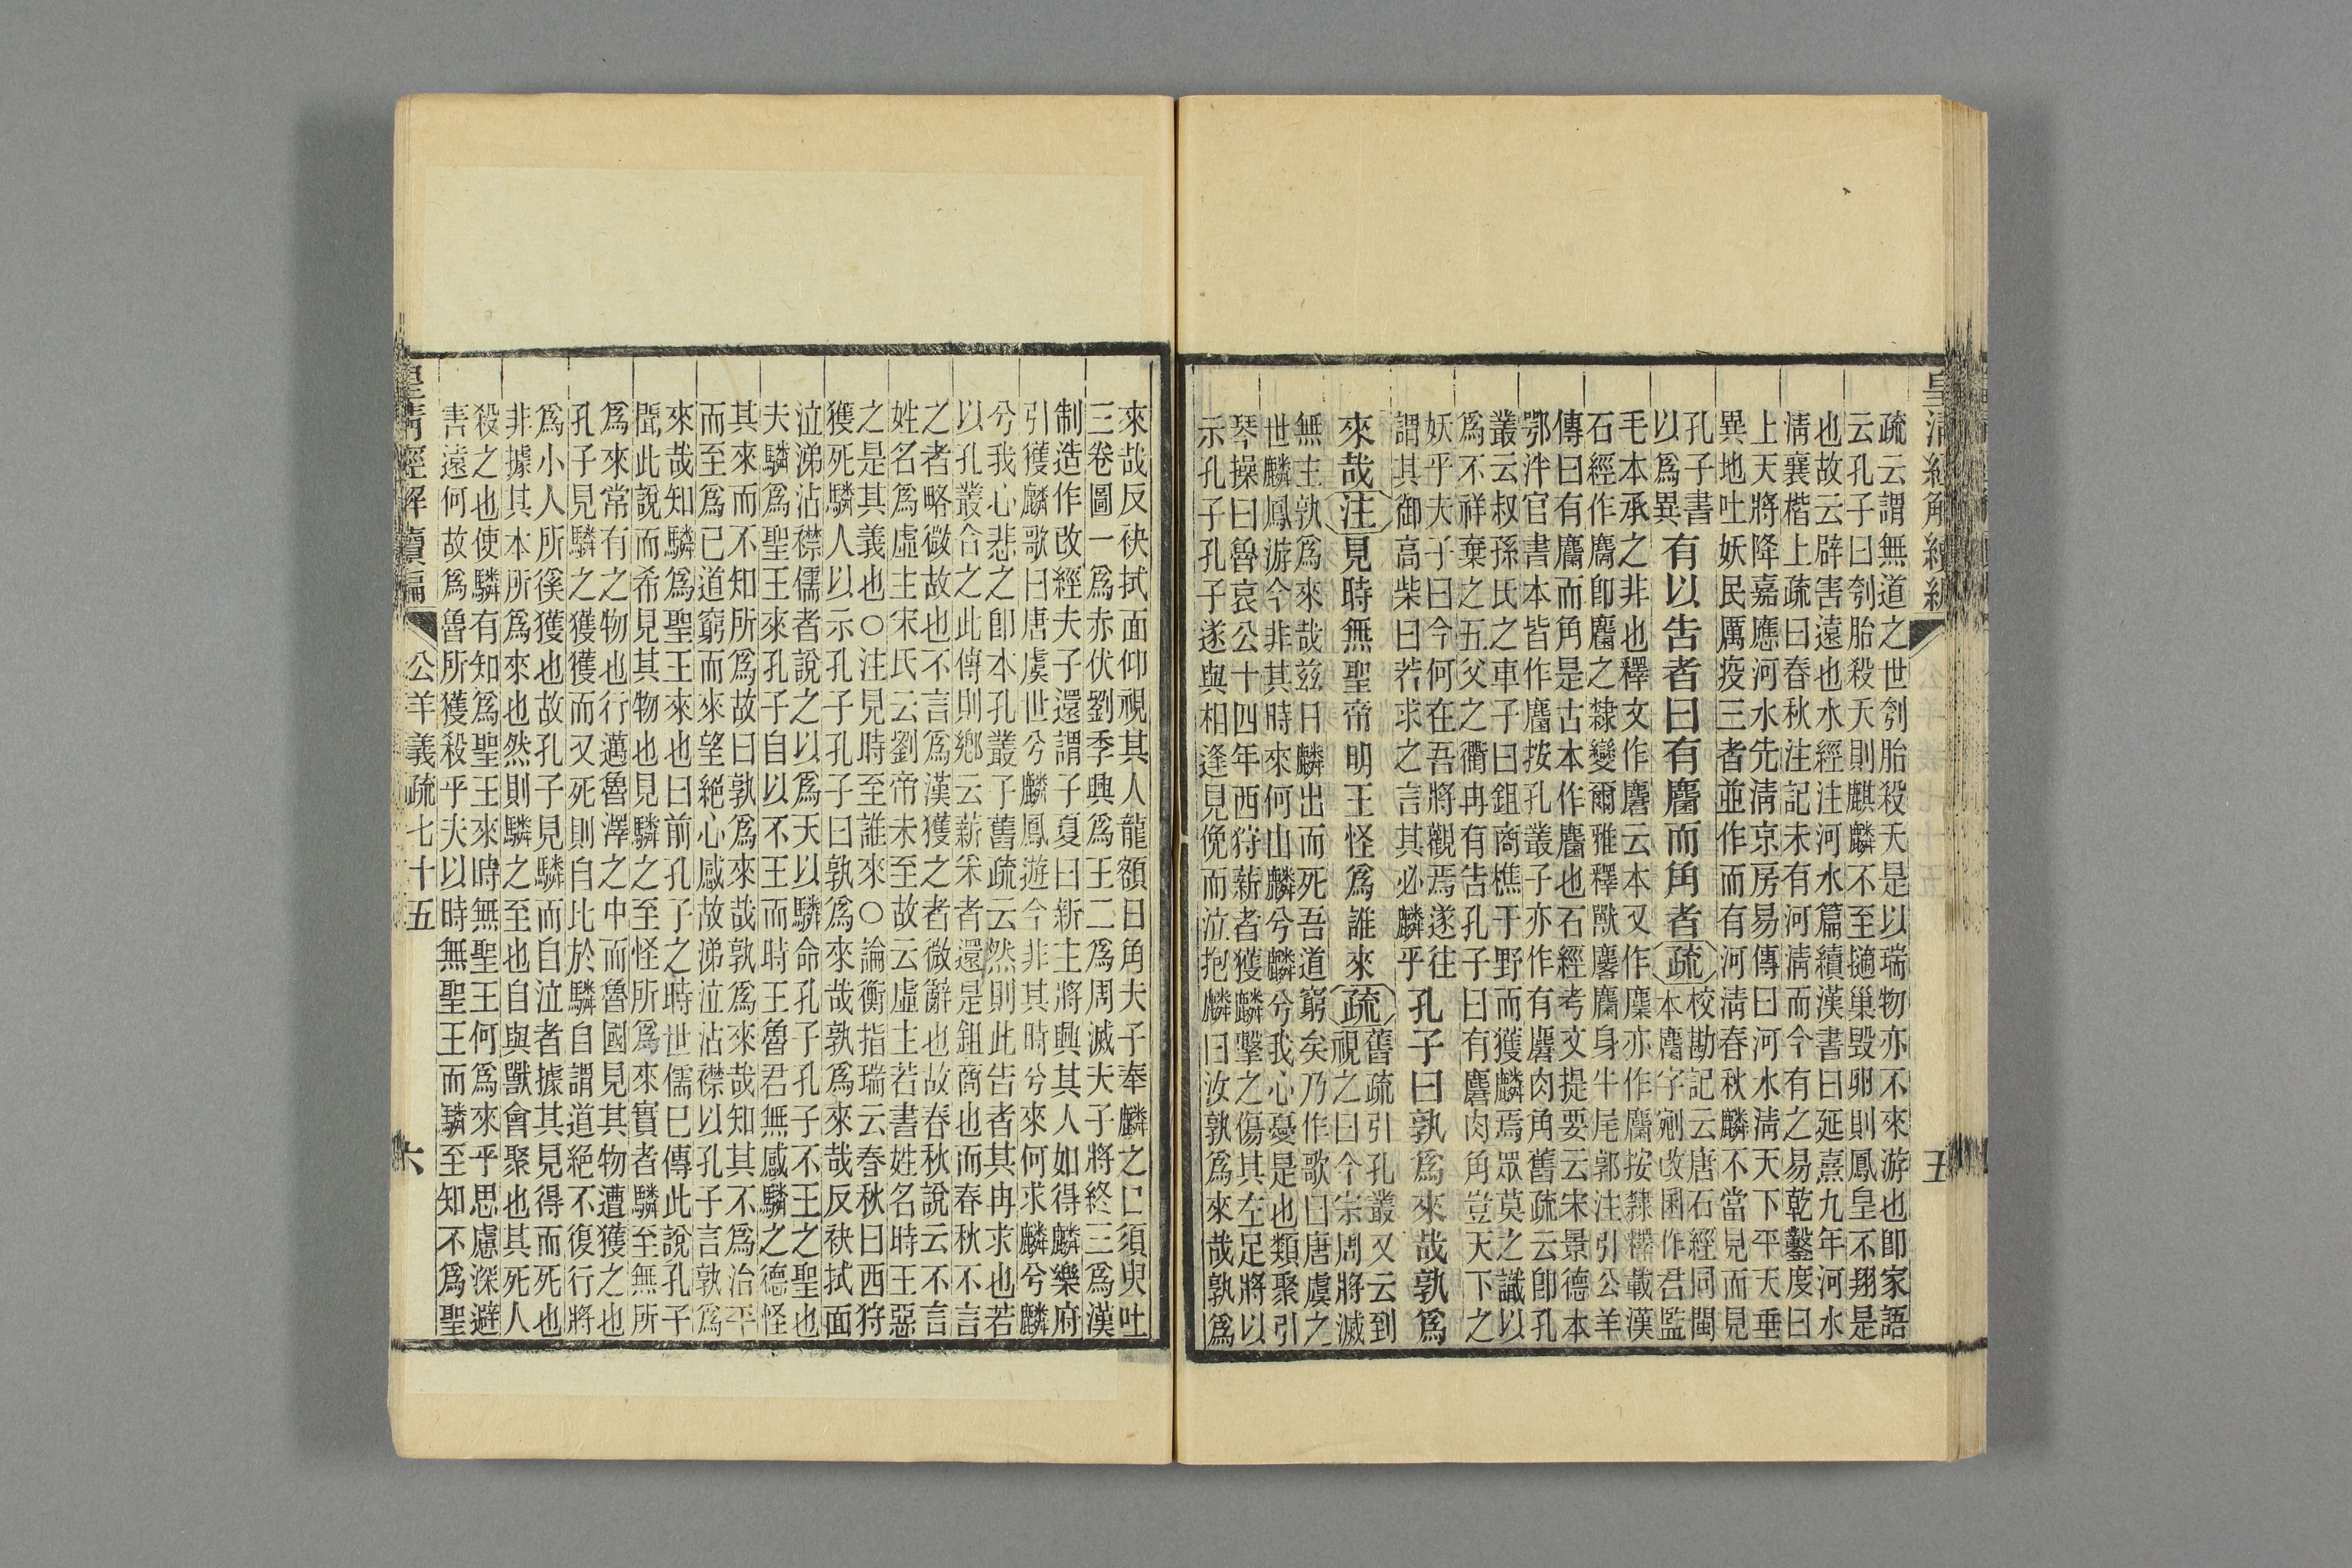 皇清經解續編
五
疏云謂無道之世刳胎殺夭是以瑞物亦不來游也卽家語
云孔子曰刳胎殺夭則麒麟不至擿巢毀卵則鳳皇不翔是
也故云辟害遠也水經注河水篇續漢書曰延熹九年河水
淸襄楷上疏曰春秋注記未有河淸而今有之易乾鑿度曰
上天將降嘉應河水先淸京房易傳曰河水淸天下平天垂
異地吐妖民厲疫三者並作而有河淸春秋麟不當見而見
孔子書
以爲異
有以告者曰有麕而角者
疏
校勘記云唐石經同閩
本麕字剜改困作君監
毛本承之非也釋文作麏云本又作麇亦作麕按隸釋載漢
石經作麕卽麕之隸變爾雅釋獸麐麕身牛尾郭注引公羊
傳曰有麕而角是古本作麕也石經考文提要云宋景德本
鄂泮官書本皆作麕按孔叢子亦作有麏肉角舊疏云卽孔
叢云叔孫氏之車子曰鉏商樵于野而獲麟焉眾莫之識以
爲不祥棄之五父之衢冉有告孔子曰有麏肉角豈天下之
妖乎夫子曰今何在吾將觀焉遂往
謂其御高柴曰若求之言其必麟乎
孔子曰孰爲來哉孰爲
來哉
注
見時無聖帝明王怪爲誰來
疏
舊疏引孔叢又云到
視之曰今宗周將滅
無主孰爲來哉茲日麟出而死吾道窮矣乃作歌曰唐虞之
世麟鳳游今非其時來何山麟兮麟兮我心憂是也類聚引
琴操曰魯哀公十四年西狩薪者獲麟擊之傷其左足將以
示孔子孔子遂與相逢見俛而泣抱麟曰汝孰爲來哉孰爲
來哉反袂拭面仰視其人龍額日角夫子奉麟之口須臾吐
三卷圖一爲赤伏劉季興爲王二爲周滅夫子將終三爲漢
制造作改經夫子還謂子夏曰新主將興其人如得麟樂府
引獲麟歌曰唐虞世兮麟鳳遊今非其時兮來何求麟兮麟
兮我心悲之卽本孔叢子舊疏云然則此告者其冉求也若
以孔叢合之此傳則鄉云薪釆者還是鉏商也而春秋不言
之者略微故也不言爲漢獲之者微辭也故春秋說云不言
姓名爲虛主宋氏云劉帝未至故云虛主若書姓名時王惡
之是其義也○注見時至誰來○論衡指瑞云春秋曰西狩
獲死驎人以示孔子孔子曰孰爲來哉孰爲來哉反袂拭面
泣涕沾襟儒者說之以爲天以驎命孔子孔子不王之聖也
夫驎爲聖王來孔子自以不王而時王魯君無感驎之德怪
其來而不知所爲故曰孰爲來哉孰爲來哉知其不爲治平
而至爲已道窮而來望絕心感故涕泣沾襟以孔子言孰爲
來哉知驎爲聖王來也曰前孔子之時世儒巳傳此說孔子
聞此說而希見其物也見驎之至怪所爲來實者驎至無所
爲來常有之物也行邁魯澤之中而魯國見其物遭獲之也
孔子見驎之獲獲而又死則自比於驎自謂道絕不復行將
爲小人所徯獲也故孔子見驎而自泣者據其見得而死也
非據其本所爲來也然則驎之至也自與獸會聚也其死人
殺之也使驎有知爲聖王來時無聖王何爲來乎思慮深避
害遠何故爲魯所獲殺乎夫以時無聖王而驎至知不爲聖
皇淸經解續編
公羊義疏七十五
六